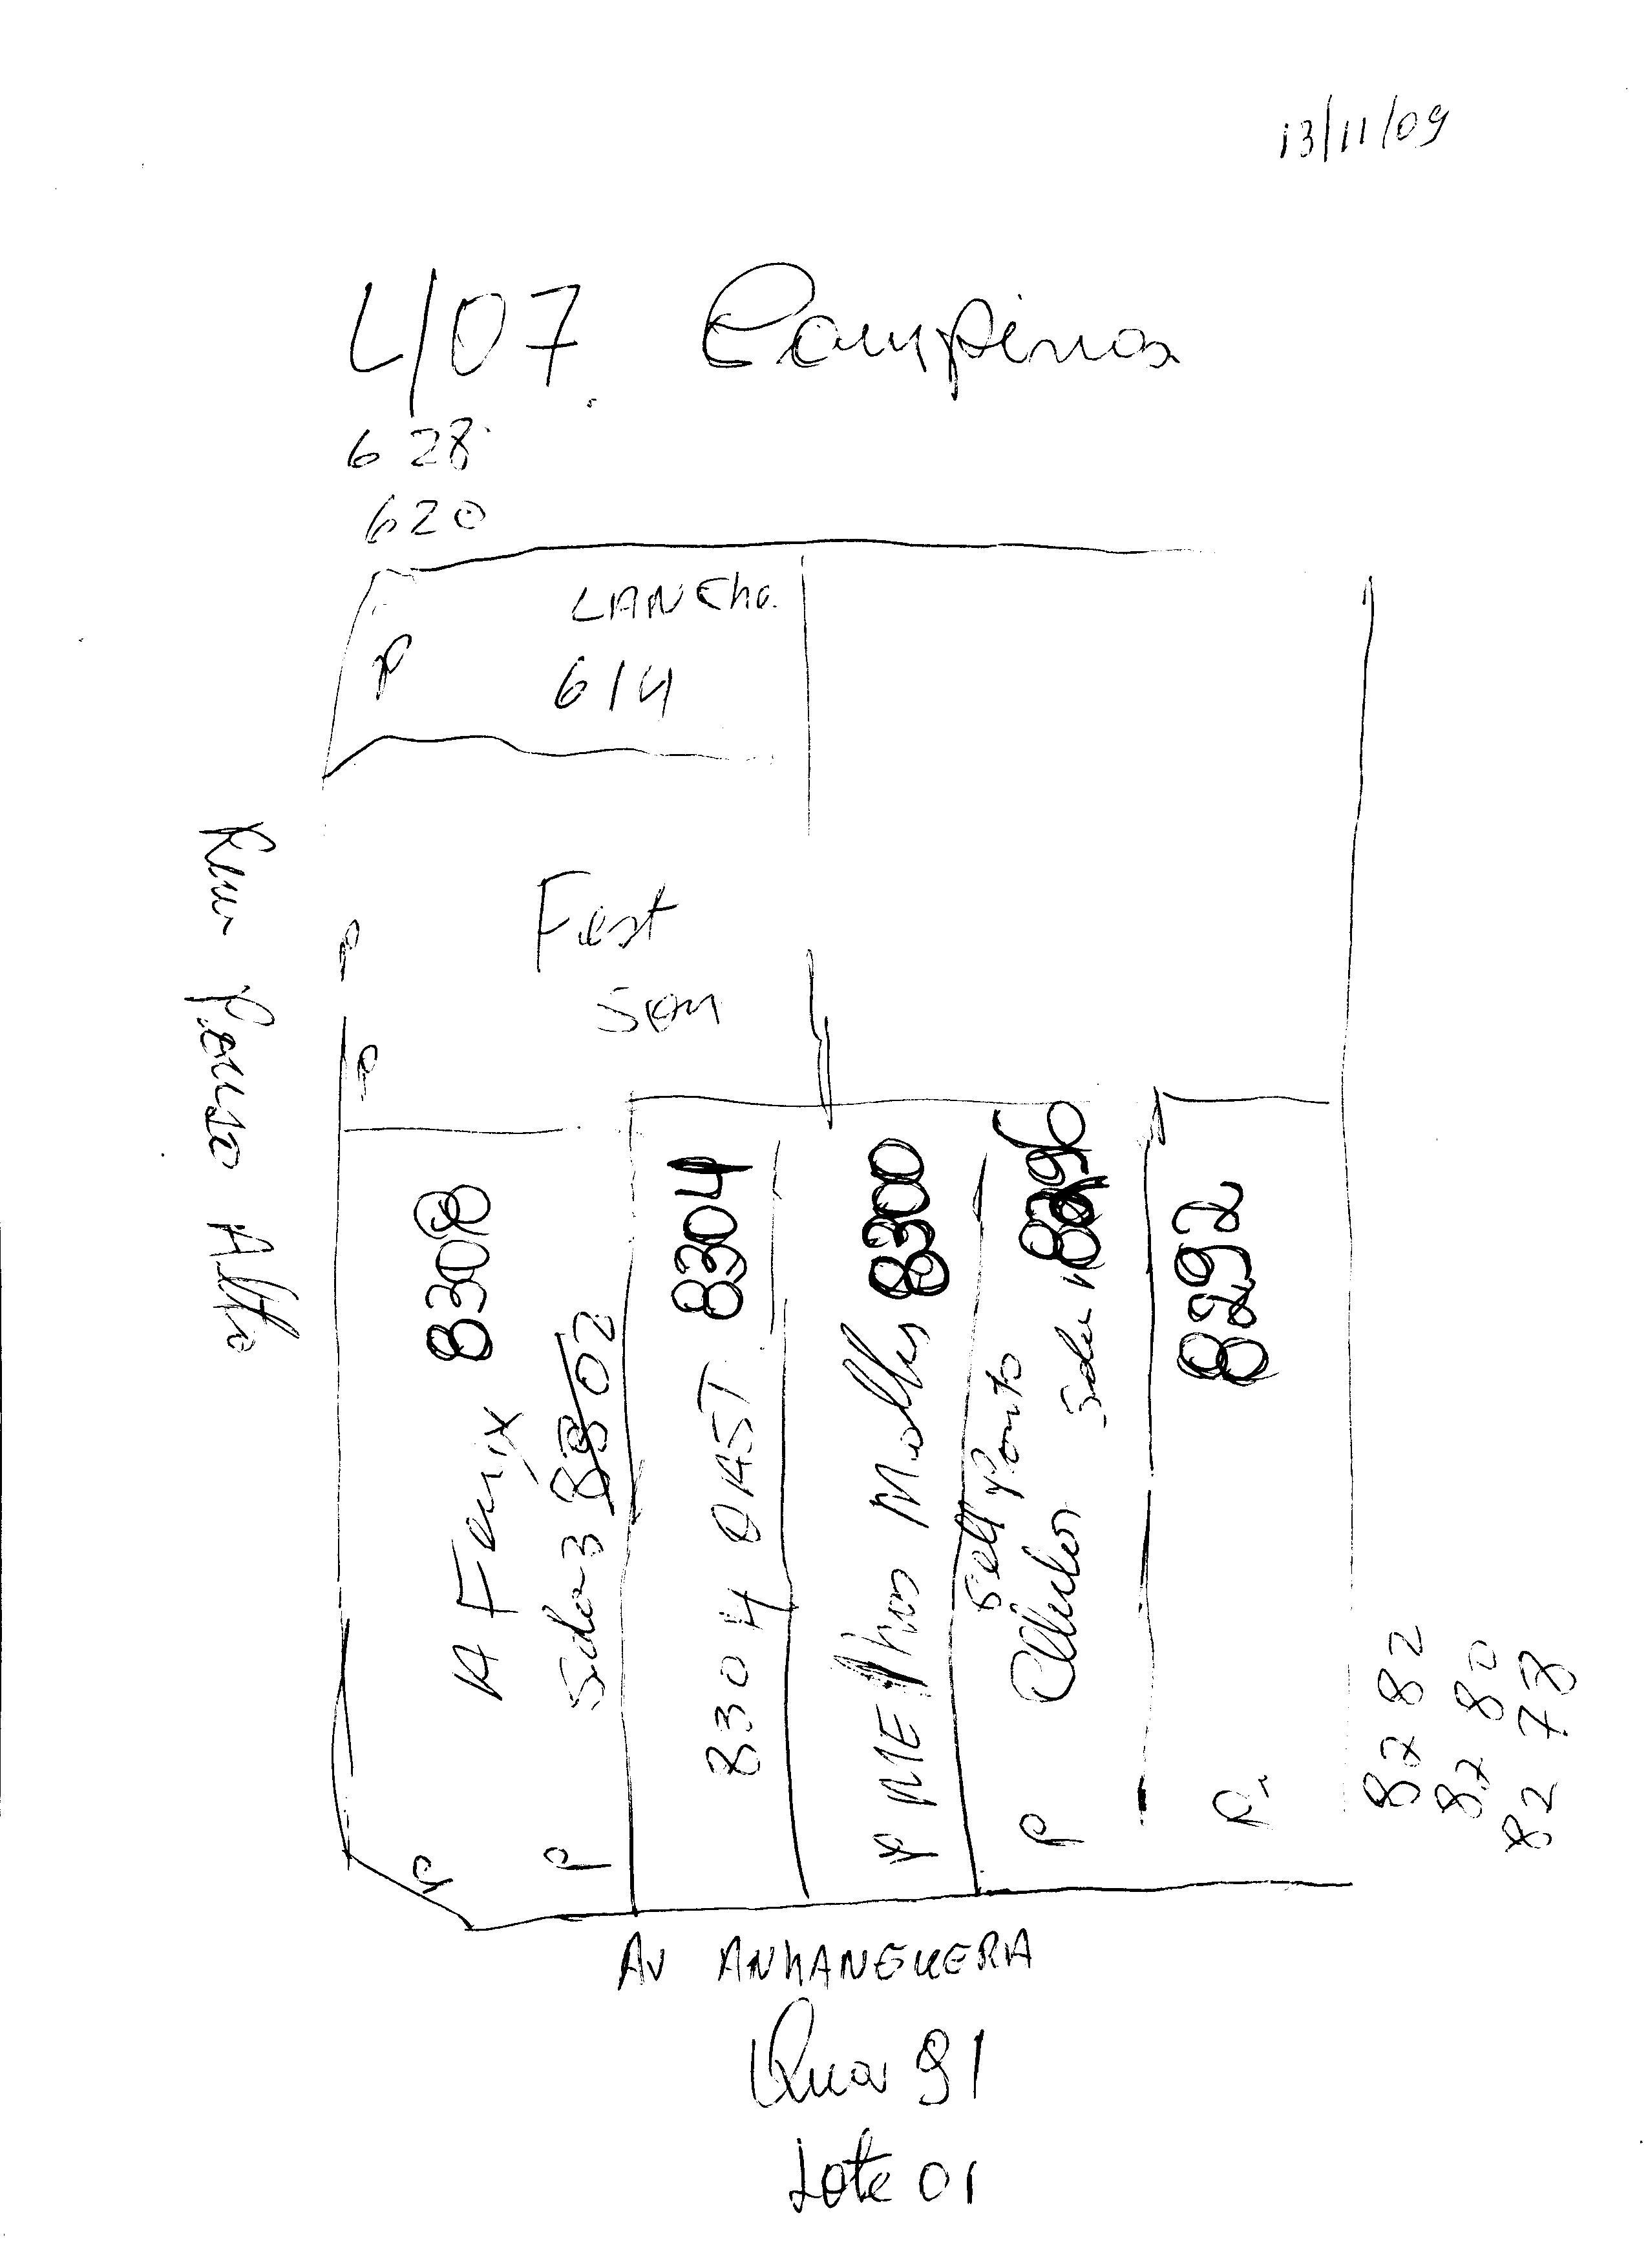 13/11/09
407 Campinas
628
620
LANCha.
P
614
Rua Pouso Alto
P
Fest
Som
P
8308
A Fenix
Sala 3 8302
P
P
8304
8304 QAST
8300
P
8296
Cell Ponto
Sala 1
P
8292
P.
8782
8780
8278
AV ANHANGUERA
Qua 91
Lote 01